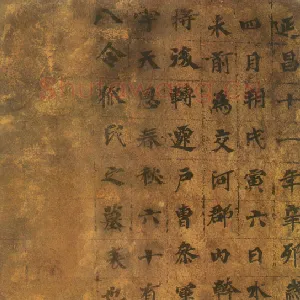 延昌十一年辛卯
四月朔戊寅六日水
未前為交河郡内幹
将後轉遷戶曹参軍
字天恩春秋六十有
八令狐氏之墓表也